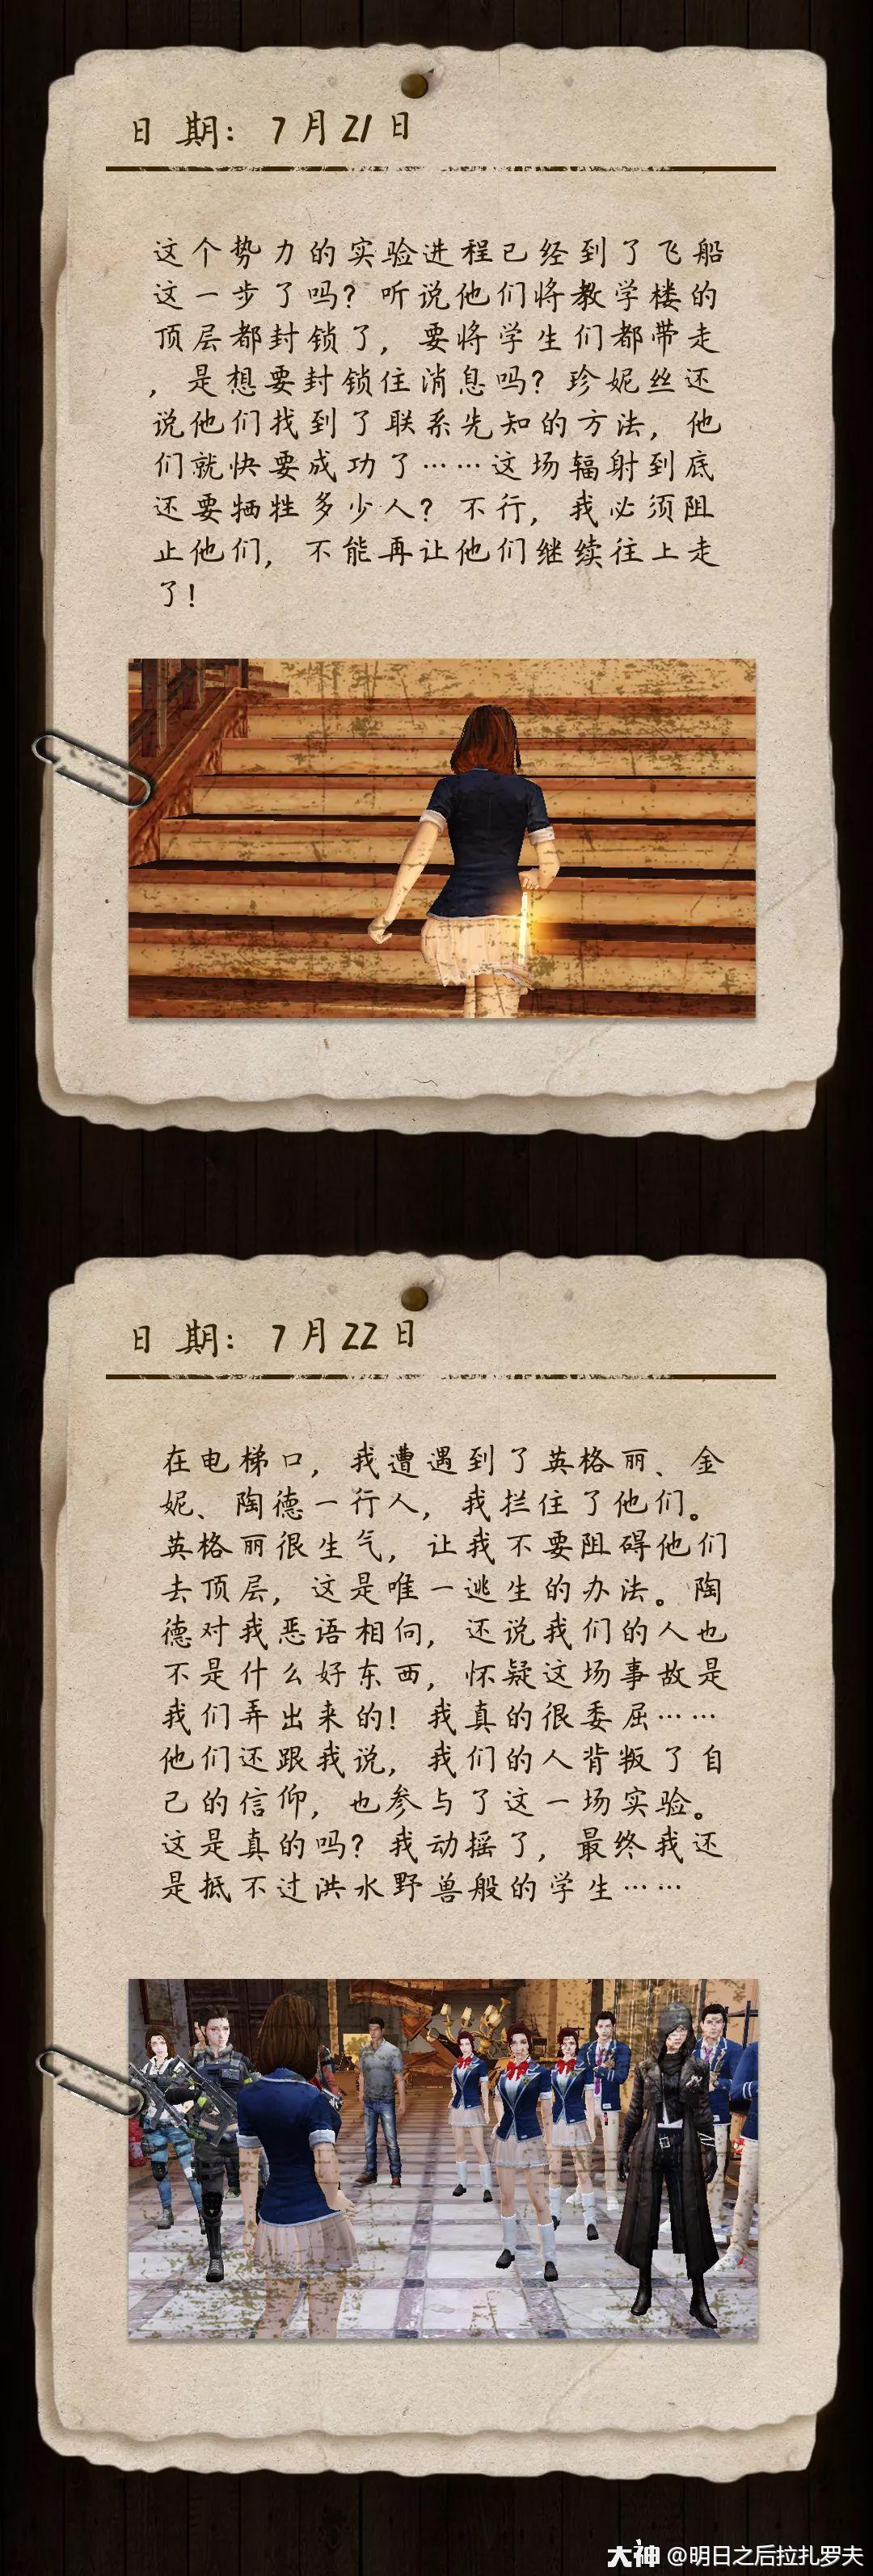 日 期: 7 月 21 日
这个势力的实验进程已经到了飞船
这一步了吗?听说他们将教学楼的
顶层都封锁了,要将学生们都带走
,是想要封锁住消息吗?珍妮丝还
说他们找到了联系先知的方法,他
们就快要成功了……这场辐射到底
还要牺牲多少人?不行,我必须阻
止他们,不能再让他们继续往上走
了!
日 期: 7 月 22 日
在电梯口,我遭遇到了英格丽、金
妮、陶德一行人,我拦住了他们。
英格丽很生气,让我不要阻碍他们
去顶层,这是唯一逃生的办法。陶
德对我恶语相向,还说我们的人也
不是什么好东西,怀疑这场事故是
我们弄出来的!我真的很委屈……
他们还跟我说,我们的人背叛了自
己的信仰,也参与了这一场实验。
这是真的吗?我动摇了,最终我还
是抵不过洪水野兽般的学生……
大神 @明日之后拉扎罗夫